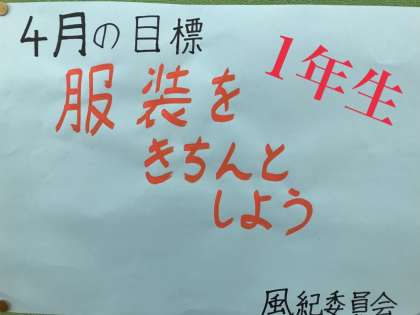 4月の目標
1年生
服装を
きちんと
しよう
風紀委員会